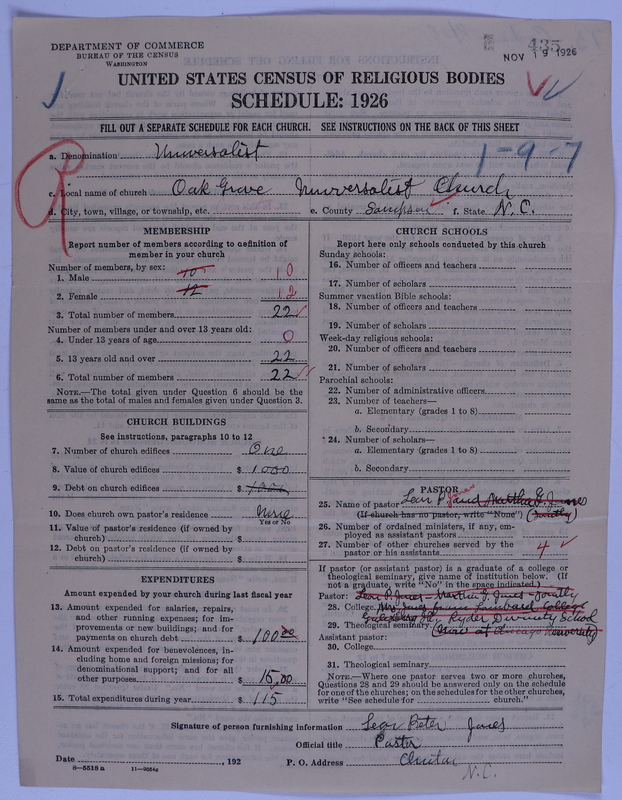 DEPARTMENT OF COMMERCE
BUREAU OF THE CENSUS
WASHINGTON
435
NOV 19 1926
UNITED STATES CENSUS OF RELIGIOUS BODIES
SCHEDULE: 1926
FILL OUT A SEPARATE SCHEDULE FOR EACH CHURCH. SEE INSTRUCTIONS ON THE BACK OF THIS SHEET
a. Denomination Universalist
1-9-7
c. Local name of church Oak Grove Universalist Church
d. City, town, village, or township, etc. e. County Sampson f. State N.C.
MEMBERSHIP
Report number of members according to definition of
member in your church
Number of members, by sex:
1. Male 10 10
2. Female 12 12
3. Total number of members 22
Number of members under and over 13 years old:
4. Under 13 years of age 0
5. 13 years old and over 22
6. Total number of members 22
NOTE.—The total given under Question 6 should be the
same as the total of males and females given under Question 3.
CHURCH BUILDINGS
See instructions, paragraphs 10 to 12
7. Number of church edifices One
8. Value of church edifices $ 1000
9. Debt on church edifices $
10. Does church own pastor's residence? None
Yes or No
11. Value of pastor's residence (if owned by
church) $
12. Debt on pastor's residence (if owned by
church) $
EXPENDITURES
Amount expended by your church during last fiscal year
13. Amount expended for salaries, repairs,
and other running expenses; for im-
provements or new buildings; and for
payments on church debt $ 100.00
14. Amount expended for benevolences, in-
cluding home and foreign missions; for
denominational support; and for all
other purposes $ 15.00
15. Total expenditures during year $ 115
CHURCH SCHOOLS
Report here only schools conducted by this church
Sunday schools:
16. Number of officers and teachers
17. Number of scholars
Summer vacation Bible schools:
18. Number of officers and teachers
19. Number of scholars
Week-day religious schools:
20. Number of officers and teachers
21. Number of scholars
Parochial schools:
22. Number of administrative officers
23. Number of teachers—
a. Elementary (grades 1 to 8)
b. Secondary
24. Number of scholars—
a. Elementary (grades 1 to 8)
b. Secondary
PASTOR
25. Name of pastor Leon P. Jones and Martha G. Jones
(If church has no pastor, write "None") (Jointly)
26. Number of ordained ministers, if any, em-
ployed as assistant pastors
27. Number of other churches served by the
pastor or his assistants 4
If pastor (or assistant pastor) is a graduate of a college or
theological seminary, give name of institution below. (If
not a graduate, write "No" in the space indicated.)
Pastor: Leon P. Jones - Martha G. Jones - Jointly
28. College Mrs. Jones from Lombard College
Galesburg Ill., Ryder Divinity School
29. Theological seminary (now at Chicago University)
Assistant pastor:
30. College
31. Theological seminary
NOTE.—Where one pastor serves two or more churches,
Questions 28 and 29 should be answered only on the schedule
for one of the churches; on the schedules for the other churches,
write "See schedule for church."
Signature of person furnishing information Leon Peter Jones
Official title Pastor
Date , 192 P. O. Address Clinton
N.C.
8-5518a 11-9654